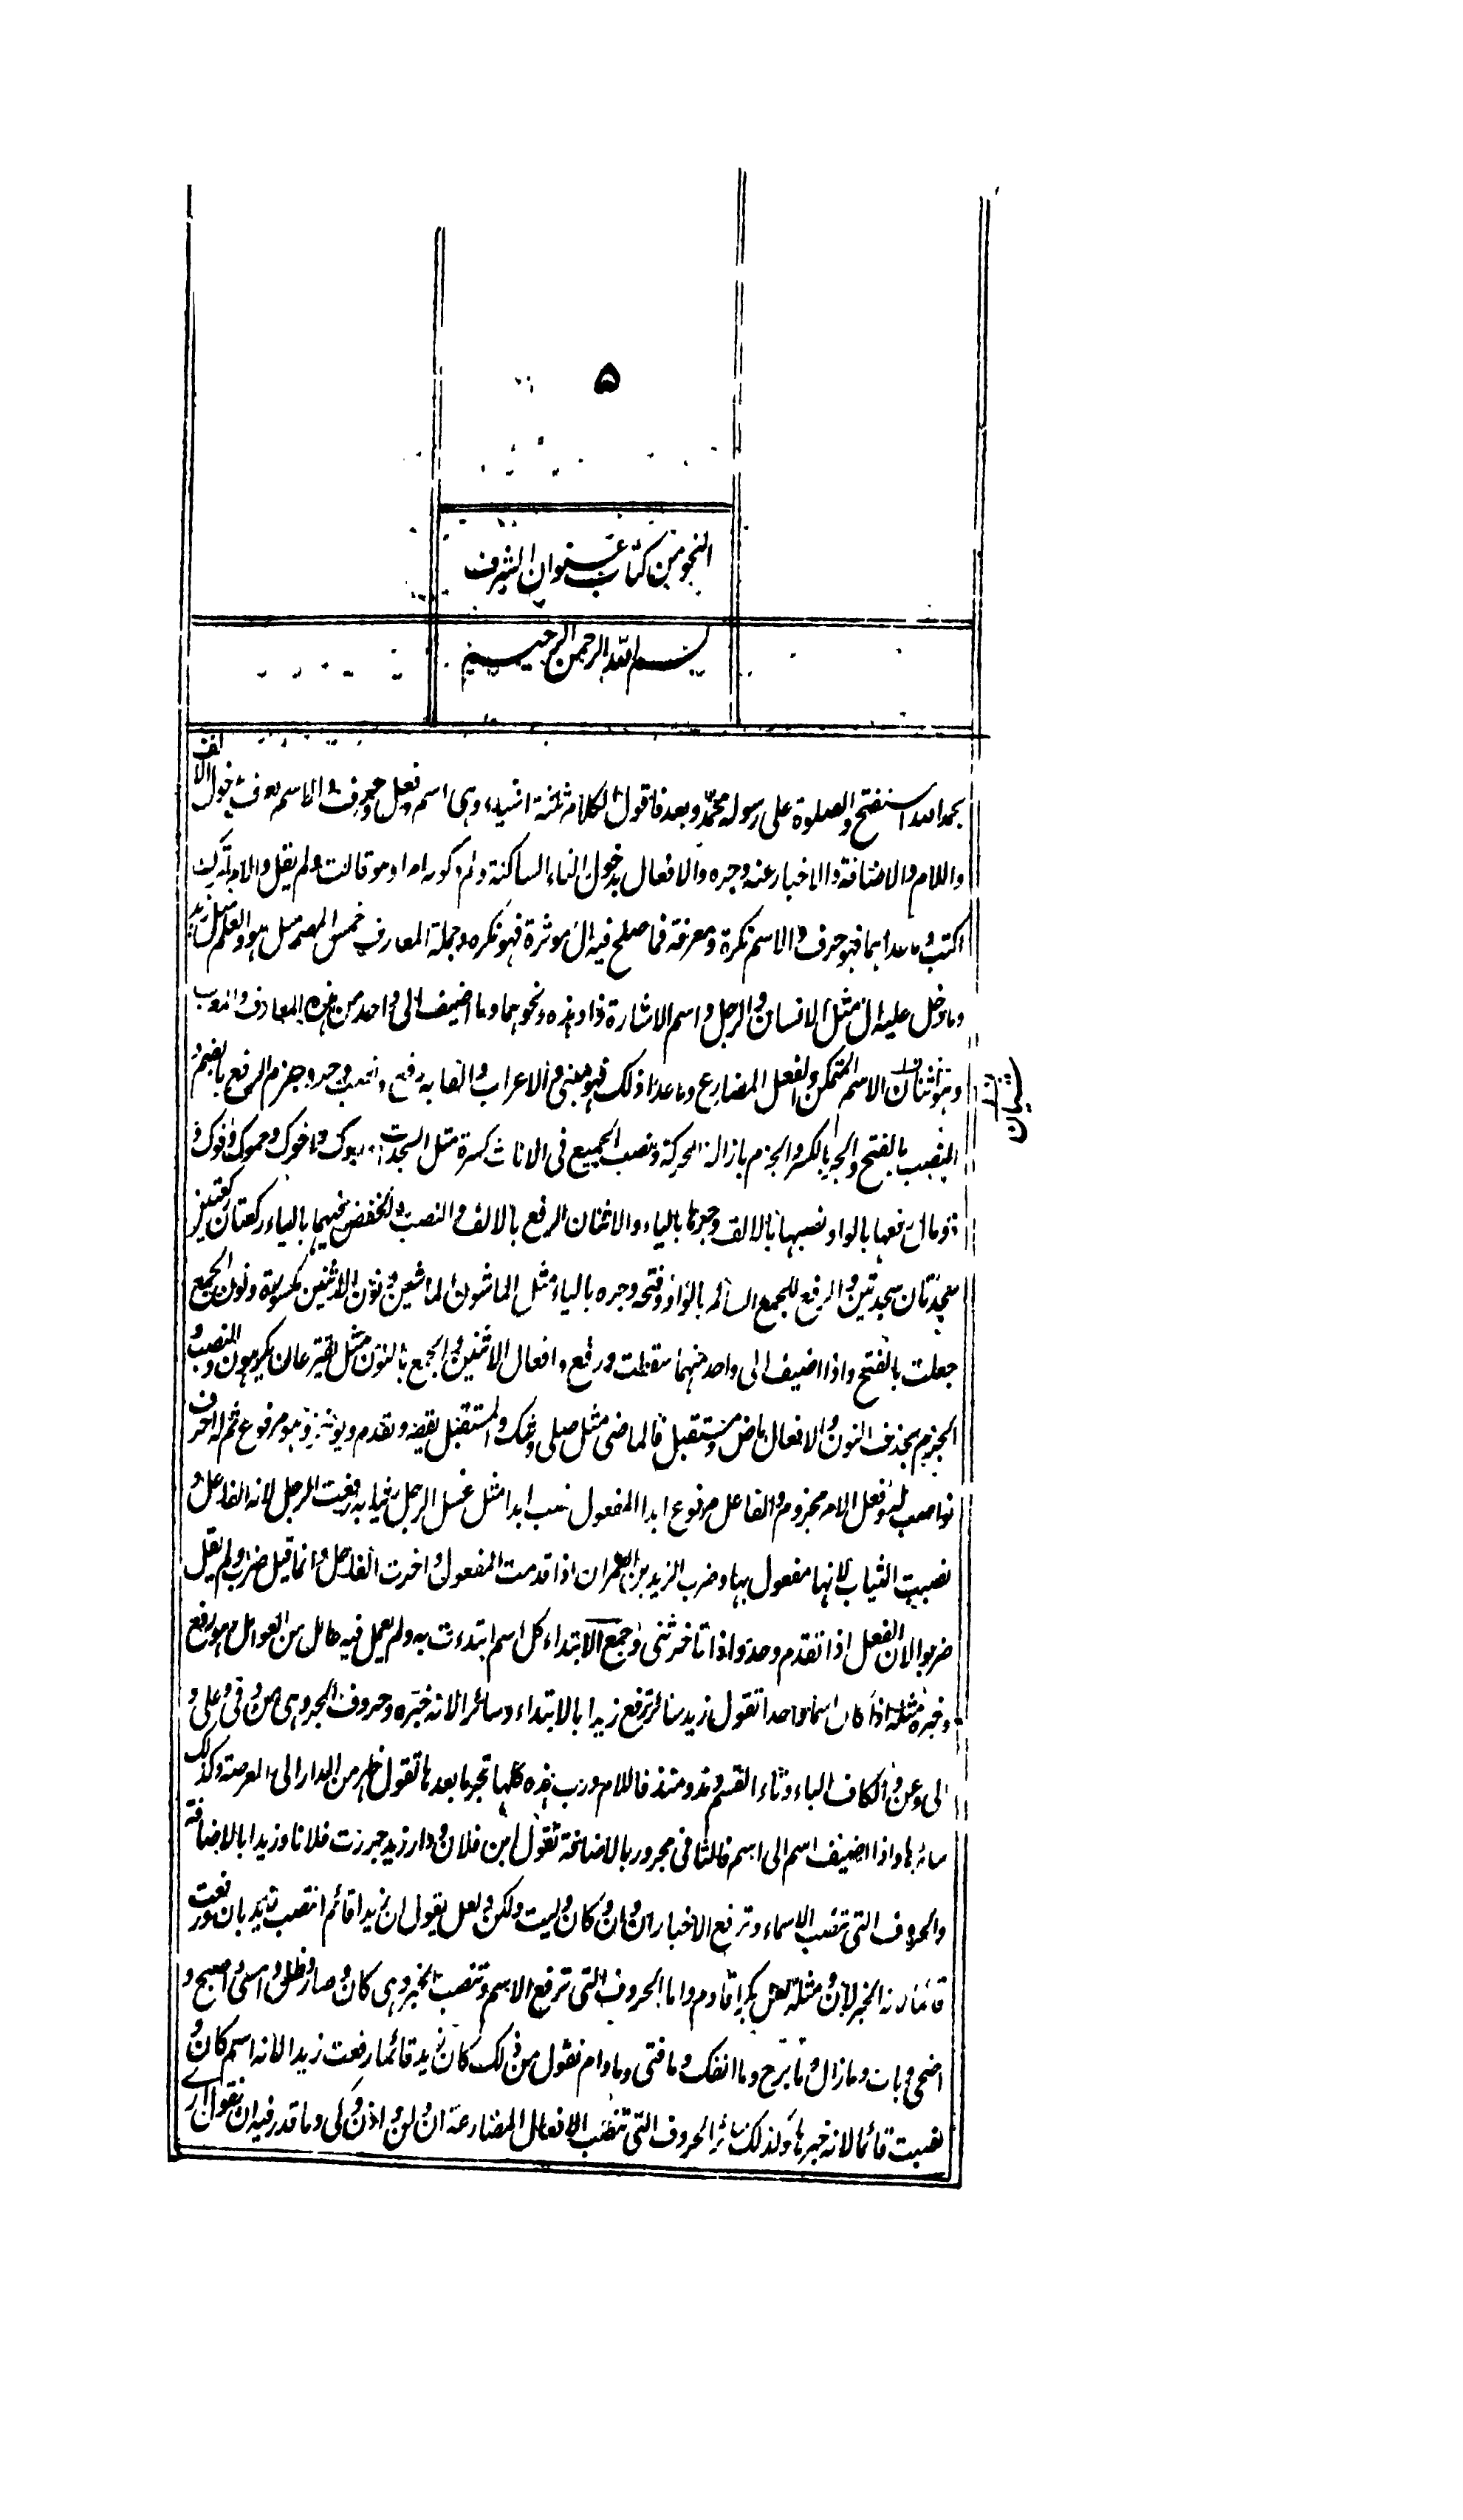 ۵
النحو من كتاب عنوان الشرف
بسم الله الرحمن الرحيم
بحمد الله استفتح والصلوة على رسوله محمد وبعد فاقول الكلام ثلثة اشياء وهى اسم وفعل وحرف والاسم يعرف بدخول الالف
واللام والاضافة والاخبار عنه وجره والافعال بدخول التاء الساكنة ولم وكونه امرا وهو قالت ولم يقل والامر كقولك
اكتب وما عداهما فهو حرف والاسم نكرة ومعرفة فما صلح فيه ال موثرة فهو نكره وجملة المعارف خمس المضمر مثل هو والعلم مثل زيد
وما دخل عليه ال مثل الانسان والرجل واسم الاشارة ذا وهذه ونحوهما وما اضيف الى واحد من هذه المعارف والمعرب
وهو اثنان الاسم المتمكن والفعل المضارع وما عدا ذلك فهو مبنى والاعراب والقابه رفع ونصب وجر وجزم الرفع بالضم و
النصب بالفتح والجر بالكسر والجزم بازالة الحركة ونصب الجميع فى الاناث كسرة مثل السجدات ابوك واخوك وحموك وفوك و
ذو مال رفعها بالواو ونصبها بالالف وجرها بالياء والاثنان الرفع بالالف والنصب والخفض فيهما بالياء ركعتان ركعتين
سجدتان سجدتين والرفع للجمع السالم بالواو وفتحه وجره بالياء مثل الماشون الماشين ونون الاثنين مكسورة ونون الجمع
جعلت بالفتح واذا اضيف الى واحد منهما سقطت ورفع وافعال الاثنين والجمع بالنون مثل يقترعان يكرمون والنصب و
الجزم بحذف النون والافعال ماض ومستقبل فالماضى مثل صلى وشك والمستقبل يقضه وتقدم وهو مرفوع ثم له احرف
نواصب له وفعل الامر مجزوم والفاعل مرفوع ابدا المفعول نصب ابدا مثل غسل الرجل ثيابه رفعت الرجل لانه الفاعل و
نصبت الثياب لانها مفعول بها وضرب الزيدين العمران اذا قدمت المفعول واخرت الفاعل وانما قيل ضرب ولم يقل
ضربوا لان الفعل اذا تقدم وحد واذا تاخر ثنى وجمع الابتداء كل اسم ابتدءت به ولم يعمل فيه عامل من العوامل وهو رفع
وخبره مثله اذا كان اسما واحدا تقول زيد سائر ترفع زيدا بالابتداء وسائر لانه خبره وحروف الجر وهى من وفى وعلى و
الى وعن والكاف الباء وتاء القسم ومذ ومنذ فاللام ورب هذه كلها تجر ما بعدها تقول خلهر من الدار الى العرصة وكذلك
سائرها واذا اضيف اسم الى اسم فالثانى مجرور بالاضافة تقول ابن فلان ودار زيد جررت فلانا وزيدا بالاضافة
والحروف التى تنصب الاسماء وترفع الاخبار ان وان وكان وليت ولكن ولعل يقول ان زيدا قائم انتصب زيد بان ورفعت
قائما لانه الخبر لان ومثله لعل بكرا قادم واما الحروف التى ترفع الاسم وتنصب الخبر وهى كان وصار وظل وامسى واصبح و
اضحى وبات وما زال وما برح وما انفك وما فتى وما دام تقول من ذلك كان زيد قائما رفعت زيدا لانه اسم كان و
نصبت قائما لانه خبرها ولذلك سائر الحروف التى تنصب الافعال المضارعة ان ولن واذن وكى وما قدر فيه ان تقول ارى